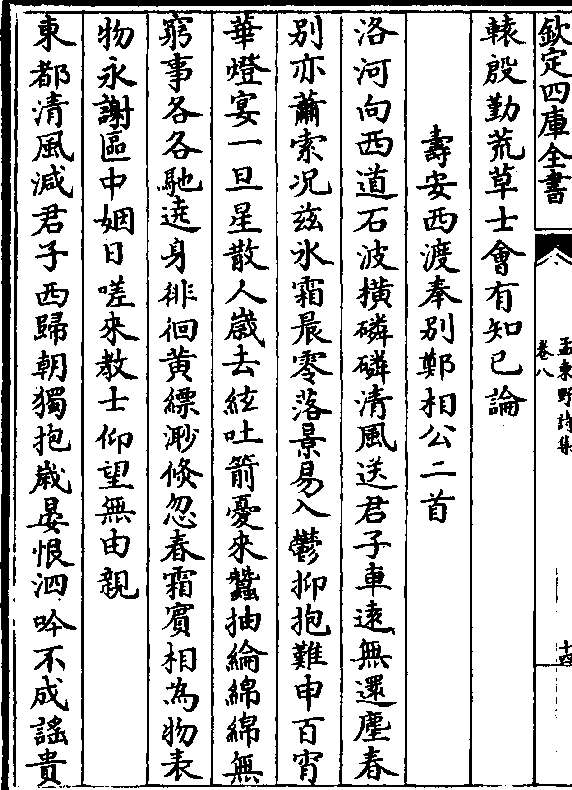 欽定四庫全書
孟東野詩集
卷八
十四
轅殷勤荒草士會有知已論
壽安西渡奉別鄭相公二首
洛河向西道石波橫磷磷清風送君子車遠無還塵春
別亦蕭索况兹氷霜晨零落景易入鬱抑抱難申百宵
華燈宴一旦星散人嵗去絃吐箭憂來蠶抽綸綿綿無
窮事各各馳遶身徘徊黄縹渺倐忽春霜賓相為物表
物永謝區中姻日嗟來教士仰望無由親
東都清風減君子西歸朝獨抱嵗晏恨泗吟不成謡貴